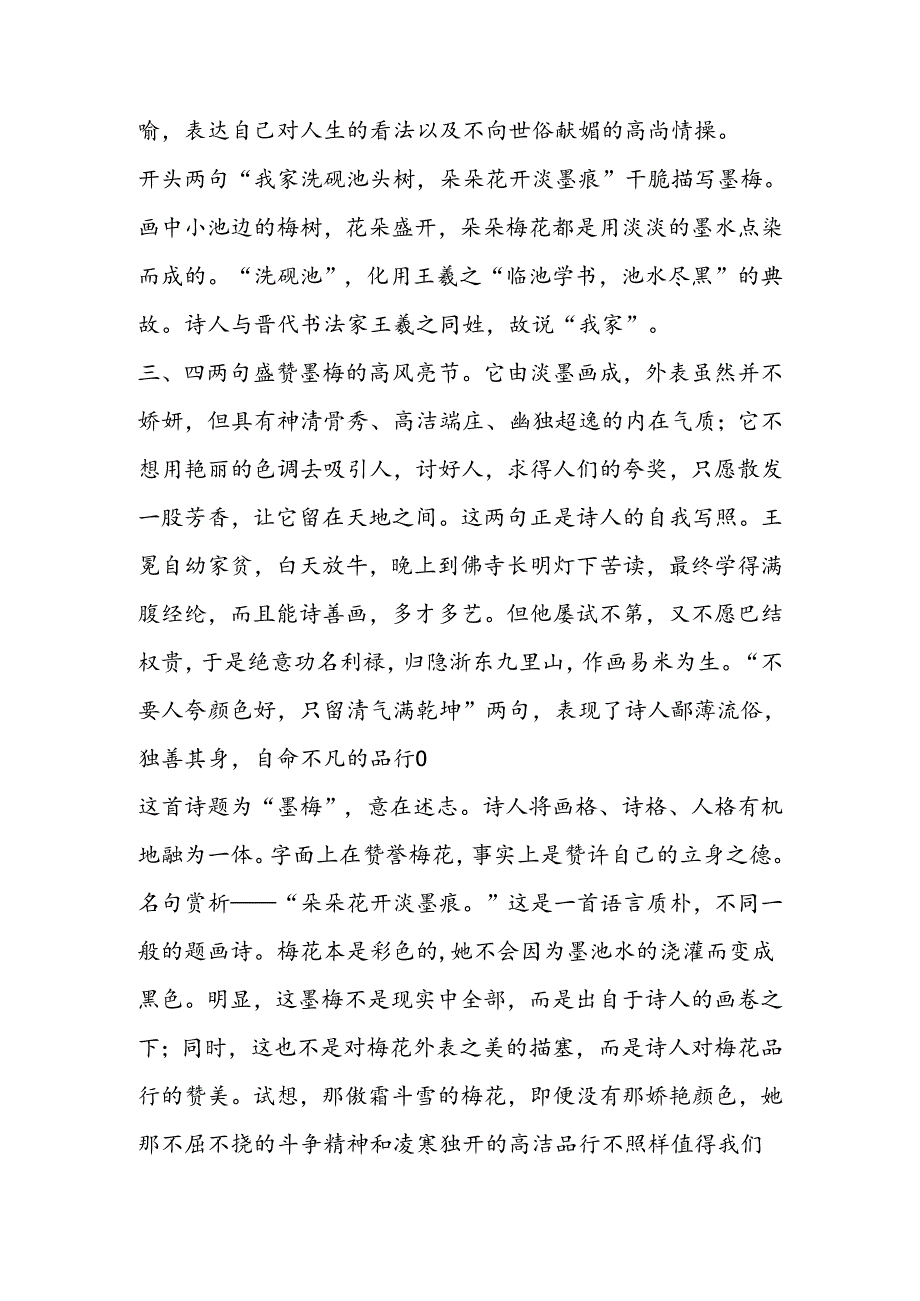 喻，表达自己对人生的看法以及不向世俗献媚的高尚情操。
开头两句“我家洗砚池头树，朵朵花开淡墨痕”干脆描写墨梅。
画中小池边的梅树，花朵盛开，朵朵梅花都是用淡淡的墨水点染
而成的。“洗砚池”，化用王羲之“临池学书，池水尽黑”的典
故。诗人与晋代书法家王羲之同姓，故说“我家”。
三、四两句盛赞墨梅的高风亮节。它由淡墨画成，外表虽然并不
娇妍，但具有神清骨秀、高洁端庄、幽独超逸的内在气质；它不
想用艳丽的色调去吸引人，讨好人，求得人们的夸奖，只愿散发
一股芳香，让它留在天地之间。这两句正是诗人的自我写照。王
冕自幼家贫，白天放牛，晚上到佛寺长明灯下苦读，最终学得满
腹经纶，而且能诗善画，多才多艺。但他屡试不第，又不愿巴结
权贵，于是绝意功名利禄，归隐浙东九里山，作画易米为生。“不
要人夸颜色好，只留清气满乾坤”两句，表现了诗人鄙薄流俗，
独善其身，自命不凡的品行0
这首诗题为“墨梅”，意在述志。诗人将画格、诗格、人格有机
地融为一体。字面上在赞誉梅花，事实上是赞许自己的立身之德。
名句赏析——“朵朵花开淡墨痕。”这是一首语言质朴，不同一
般的题画诗。梅花本是彩色的,她不会因为墨池水的浇灌而变成
黑色。明显，这墨梅不是现实中全部，而是出自于诗人的画卷之
下；同时，这也不是对梅花外表之美的描塞，而是诗人对梅花品
行的赞美。试想，那傲霜斗雪的梅花，即便没有那娇艳颜色，她
那不屈不挠的斗争精神和凌寒独开的高洁品行不照样值得我们